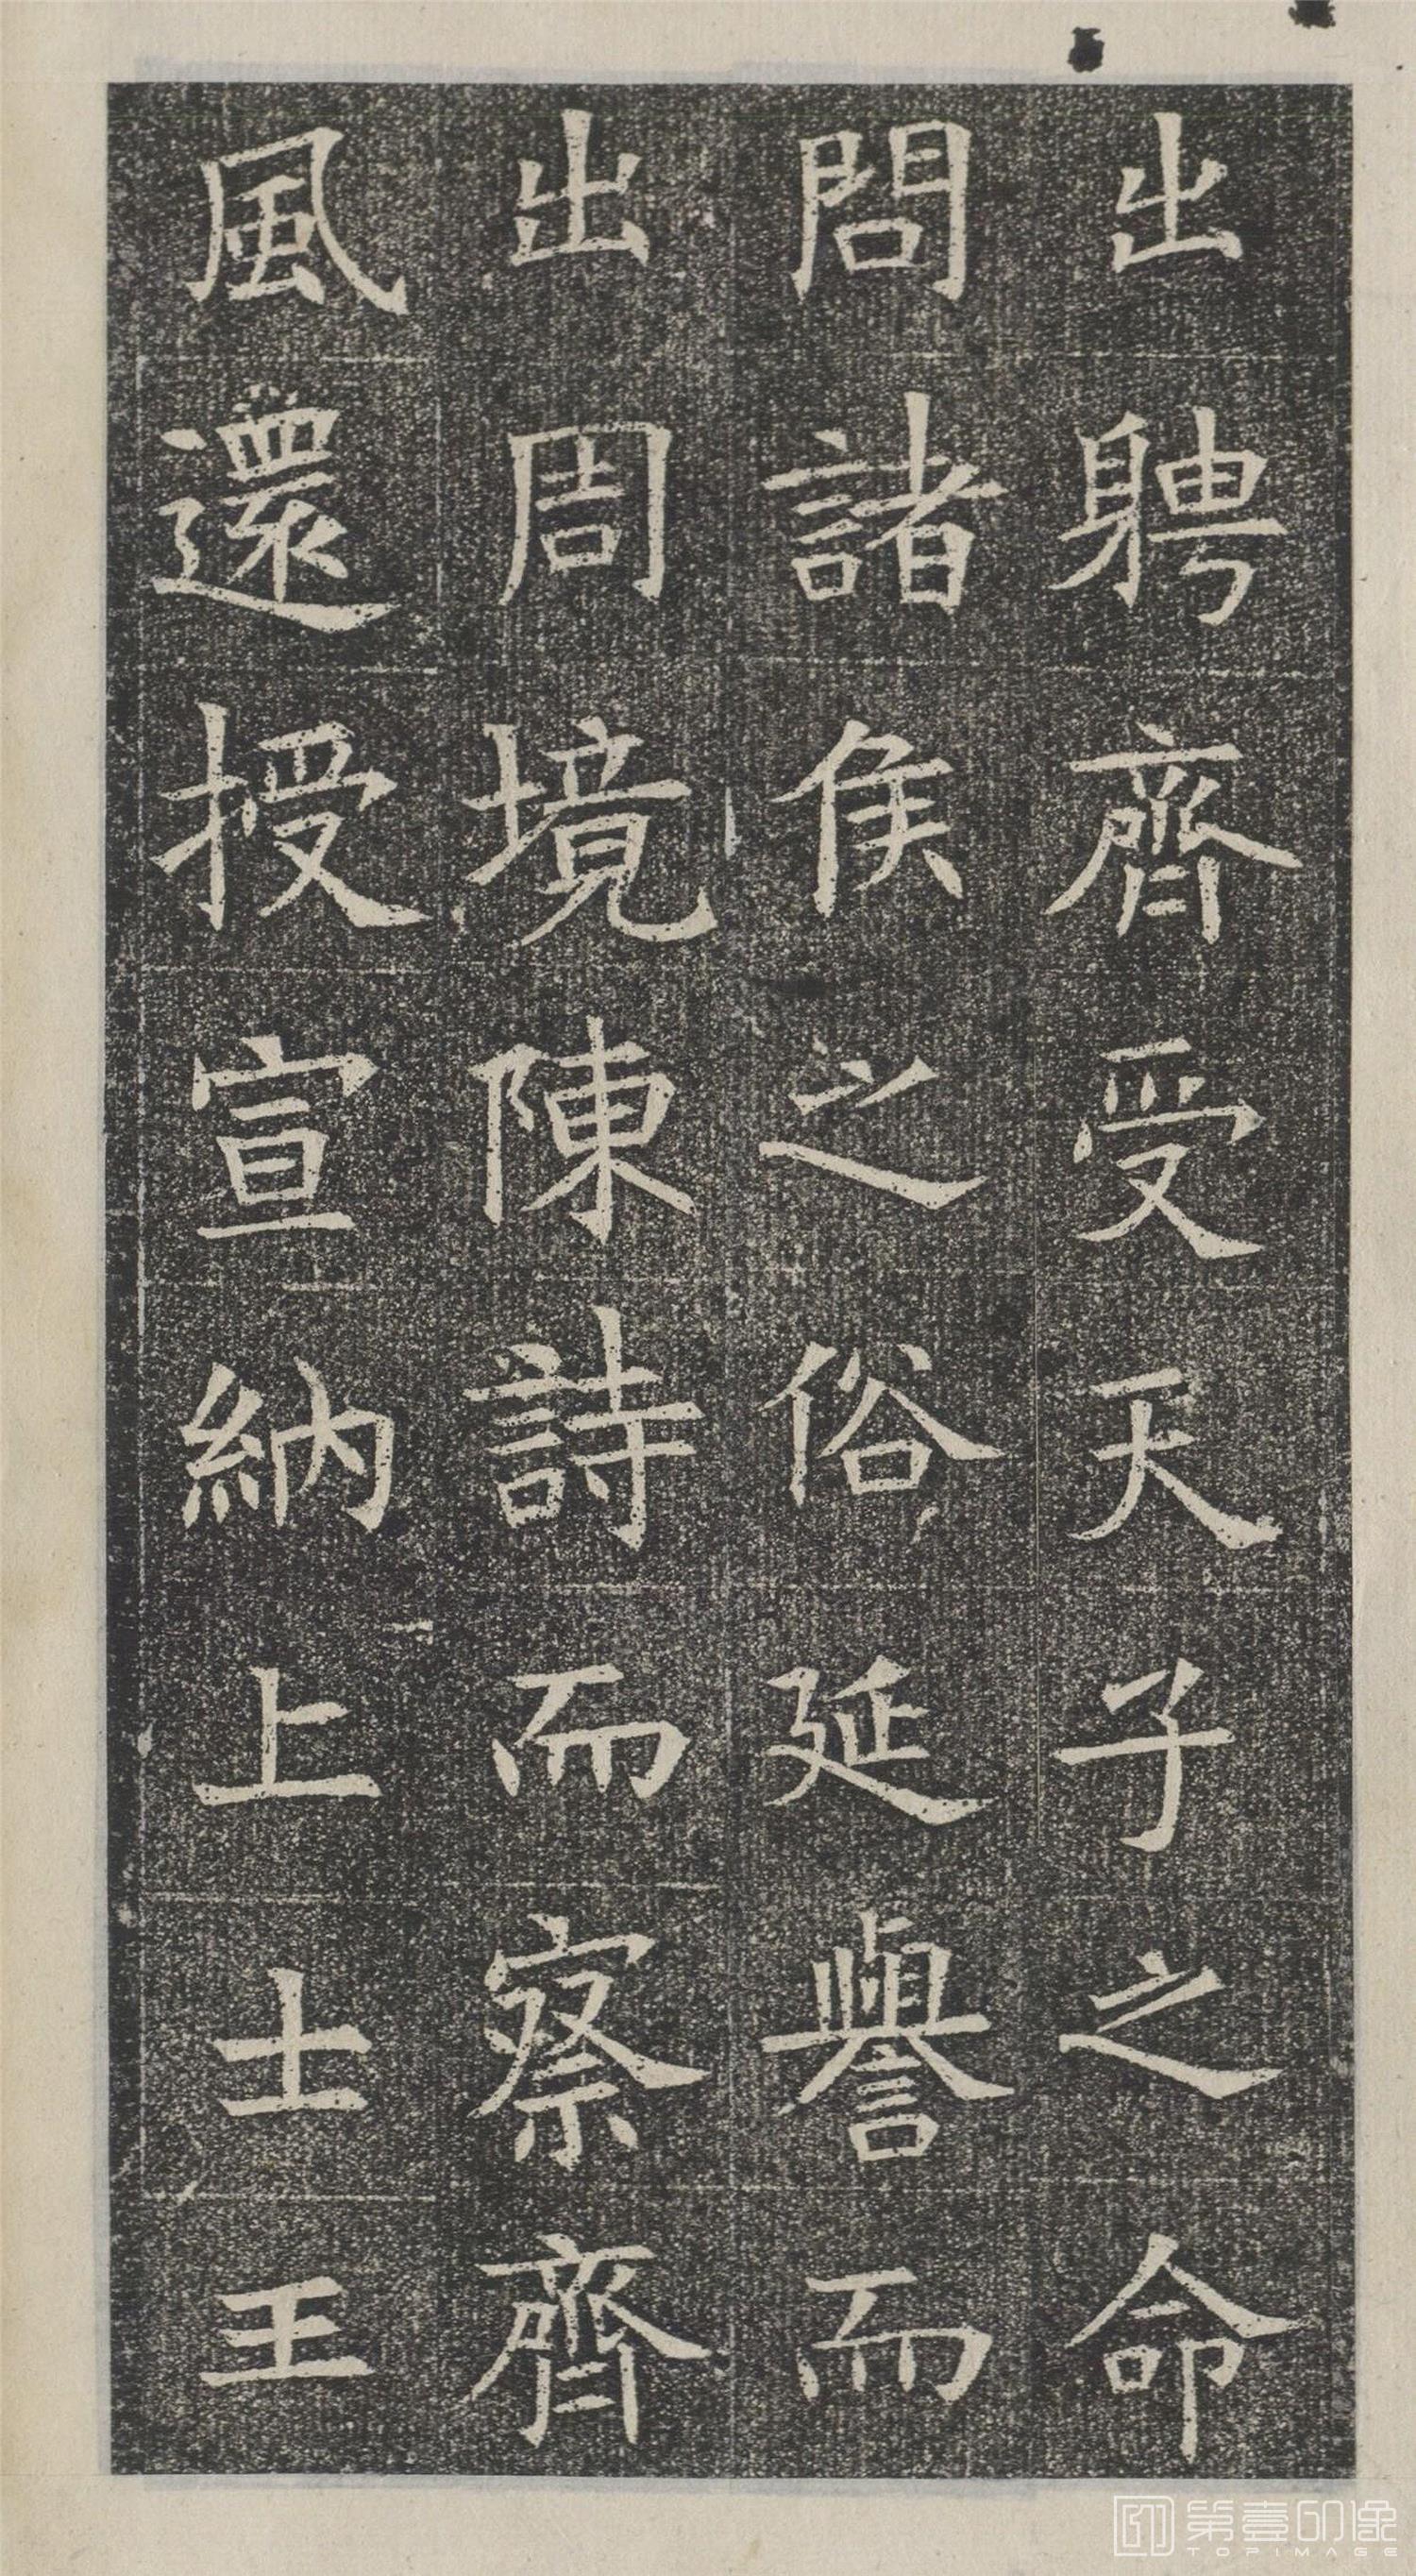 出聘齊受天子之命
問諸侯之俗延譽而
出周境陳詩而察齊
風還授宣納上士王
第壹印像
TOPIMAGE